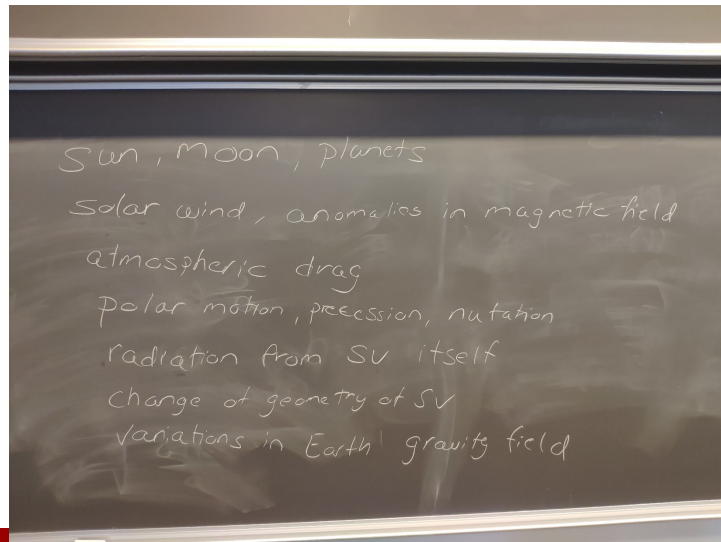 Sun, Moon, planets
Solar wind, anomalies in magnetic field
atmospheric drag
Polar motion, precession, nutation
radiation from SV itself
Change of geometry of SV
Variations in Earth gravity field